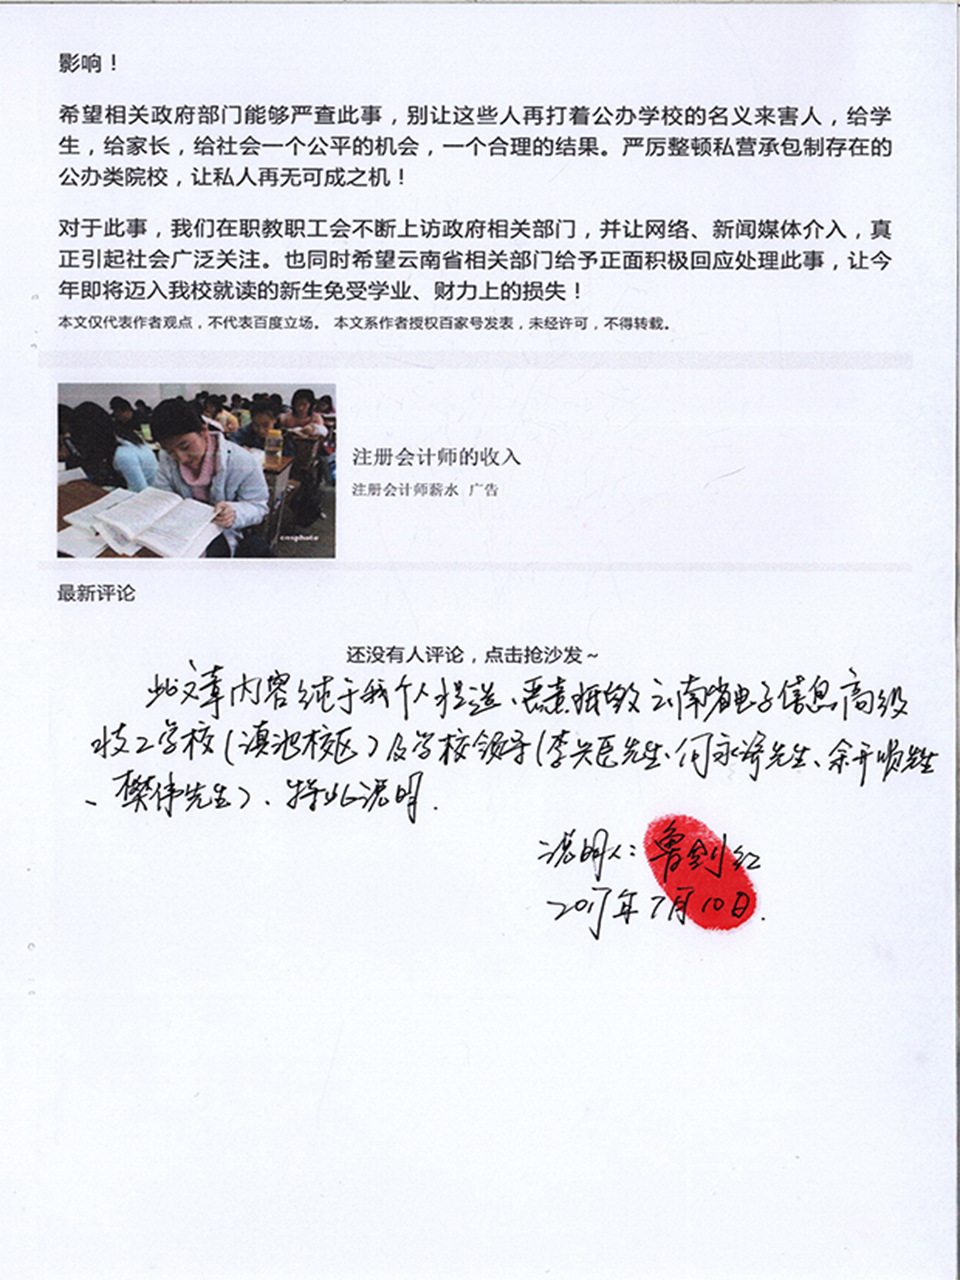 影响！
希望相关政府部门能够严查此事，别让这些人再打着公办学校的名义来害人，给学
生，给家长，给社会一个公平的机会，一个合理的结果。严厉整顿私营承包制存在的
公办类院校，让私人再无可成之机！
对于此事，我们在职教职工会不断上访政府相关部门，并让网络、新闻媒体介入，真
正引起社会广泛关注。也同时希望云南省相关部门给予正面积极回应处理此事，让今
年即将迈入我校就读的新生免受学业、财力上的损失！
本文仅代表作者观点，不代表百度立场。 本文系作者授权百家号发表，未经许可，不得转载。
cnsphoto
注册会计师的收入
注册会计师薪水 广告
最新评论
还没有人评论，点击抢沙发~
此文章内容纯于我个人捏造、恶意抵毁云南省电子信息高级
技工学校（滇池校区）及学校领导（李兴臣先生、何永舒先生、余开顺先生
、樊伟先生）、特此说明.
说明人：鲁剑红
2017年7月10日.